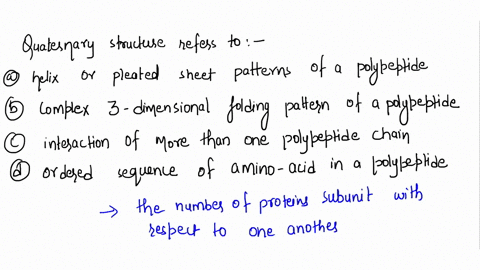 Quaternary structure refers to :-
(a) helix or pleated sheet patterns of a polypeptide
(b) complex 3-dimensional folding pattern of a polypeptide
(c) interaction of more than one polypeptide chain
(d) ordered sequence of amino-acid in a polypeptide
→ the number of proteins subunit with
respect to one another